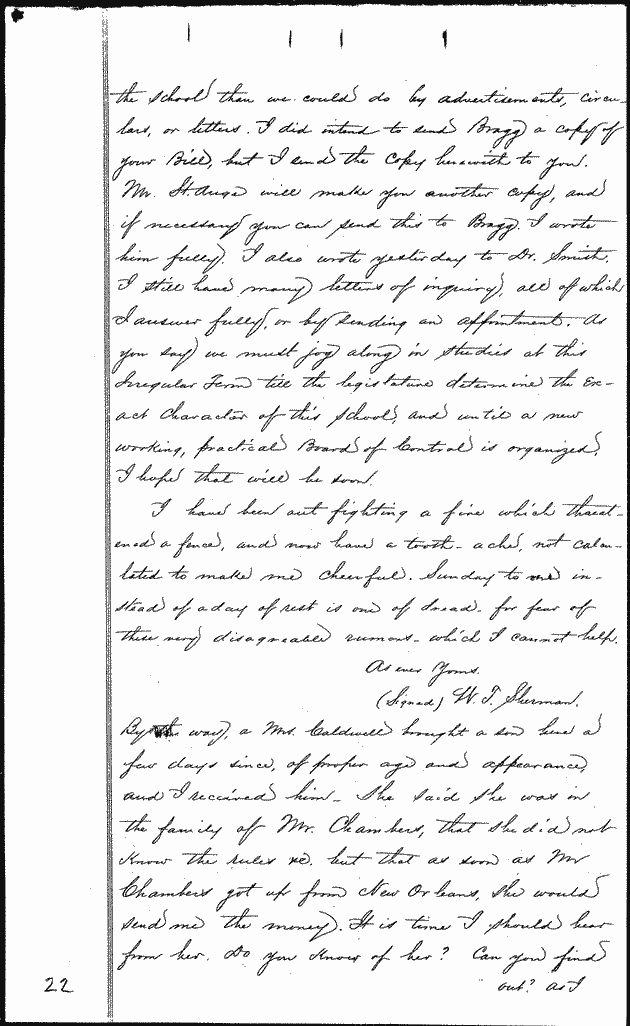 the school than we could do by advertisements, circu-
lars, or letters. I did intend to send Bragg a copy of
your Bill, but I send the copy herewith to you.
Mr. St. Ange will make you another copy, and
if necessary you can send this to Bragg. I wrote
him fully. I also wrote yesterday to Dr. Smith.
I still have many letters of inquiry, all of which
I answer fully, or by sending an appointment. As
you say we must jog along in studies at this
Irregular Term till the legislature determine the Ex-
act Character of this School, and until a new
working, practical Board of Control is organized,
I hope that will be soon.
I have been out fighting a fire which threat-
ened a fence, and now have a tooth-ache, not calcu-
lated to make me cheerful. Sunday to me in-
stead of a day of rest is one of dread - for fear of
these very disagreeable rumors - which I cannot help.
As ever Yours.
(Signed) W. T. Sherman.
By the way, a Mrs. Caldwell brought a son here a
few days since, of proper age and appearance,
and I received him - She said she was in
the family of Mr. Chambers, that she did not
Know the rules &c. but that as soon as Mr
Chambers got up from New Orleans, she would
send me the money. It is time I should hear
from her. Do you Know of her? Can you find
22 out? as I